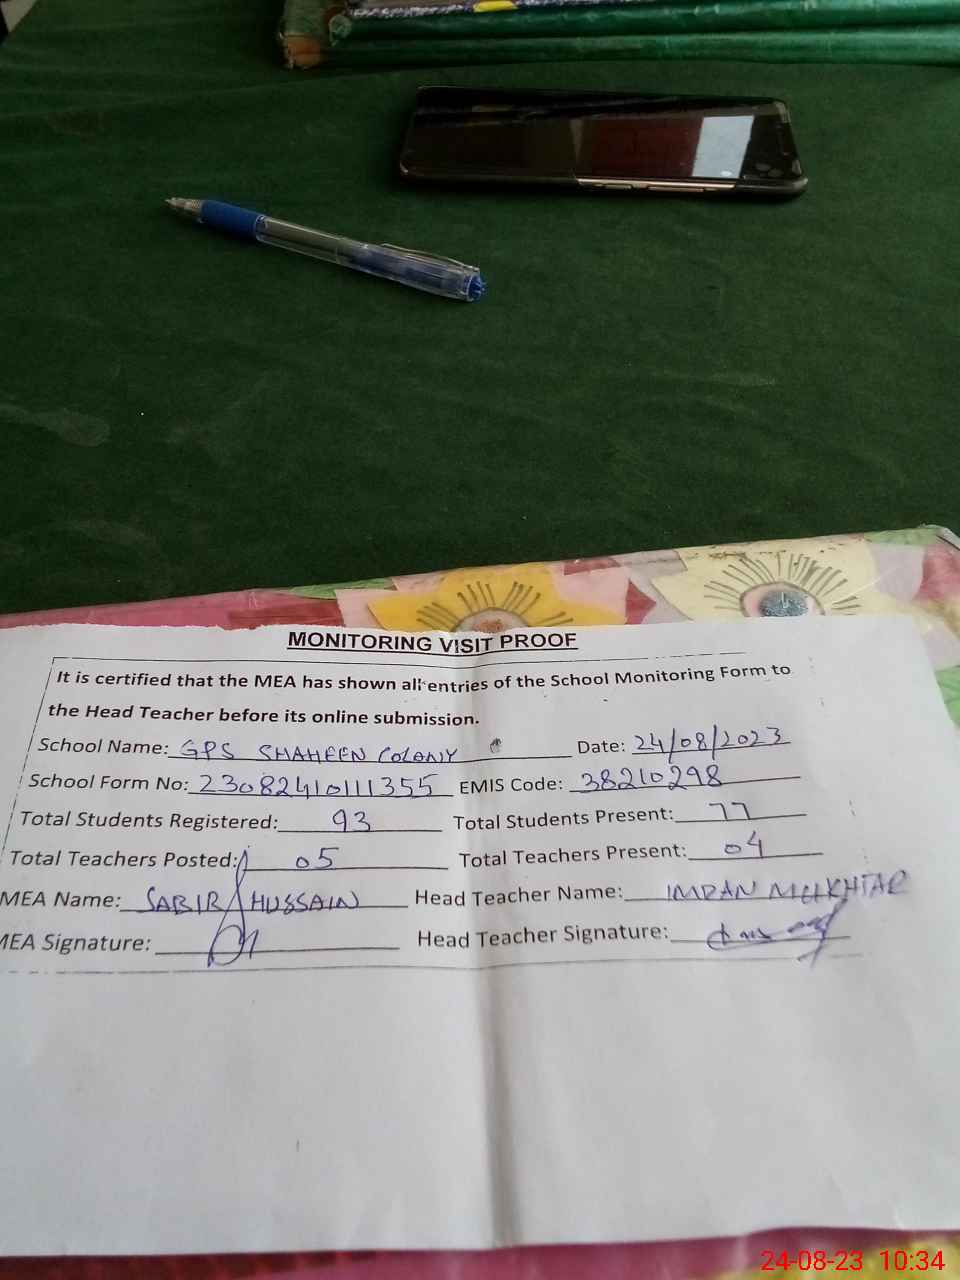 MONITORING VISIT PROOF
It is certified that the MEA has shown all entries of the School Monitoring Form to
the Head Teacher before its online submission.
School Name: GPS SHAHEEN COLONY Date: 24/08/2023
School Form No: 23082410111355 EMIS Code: 38210298
Total Students Registered: 93 Total Students Present: 77
Total Teachers Posted: 05 Total Teachers Present: 04
MEA Name: SABIR HUSSAIN Head Teacher Name: IMRAN MUKHTAR
MEA Signature: Head Teacher Signature:
24-08-23 10:34